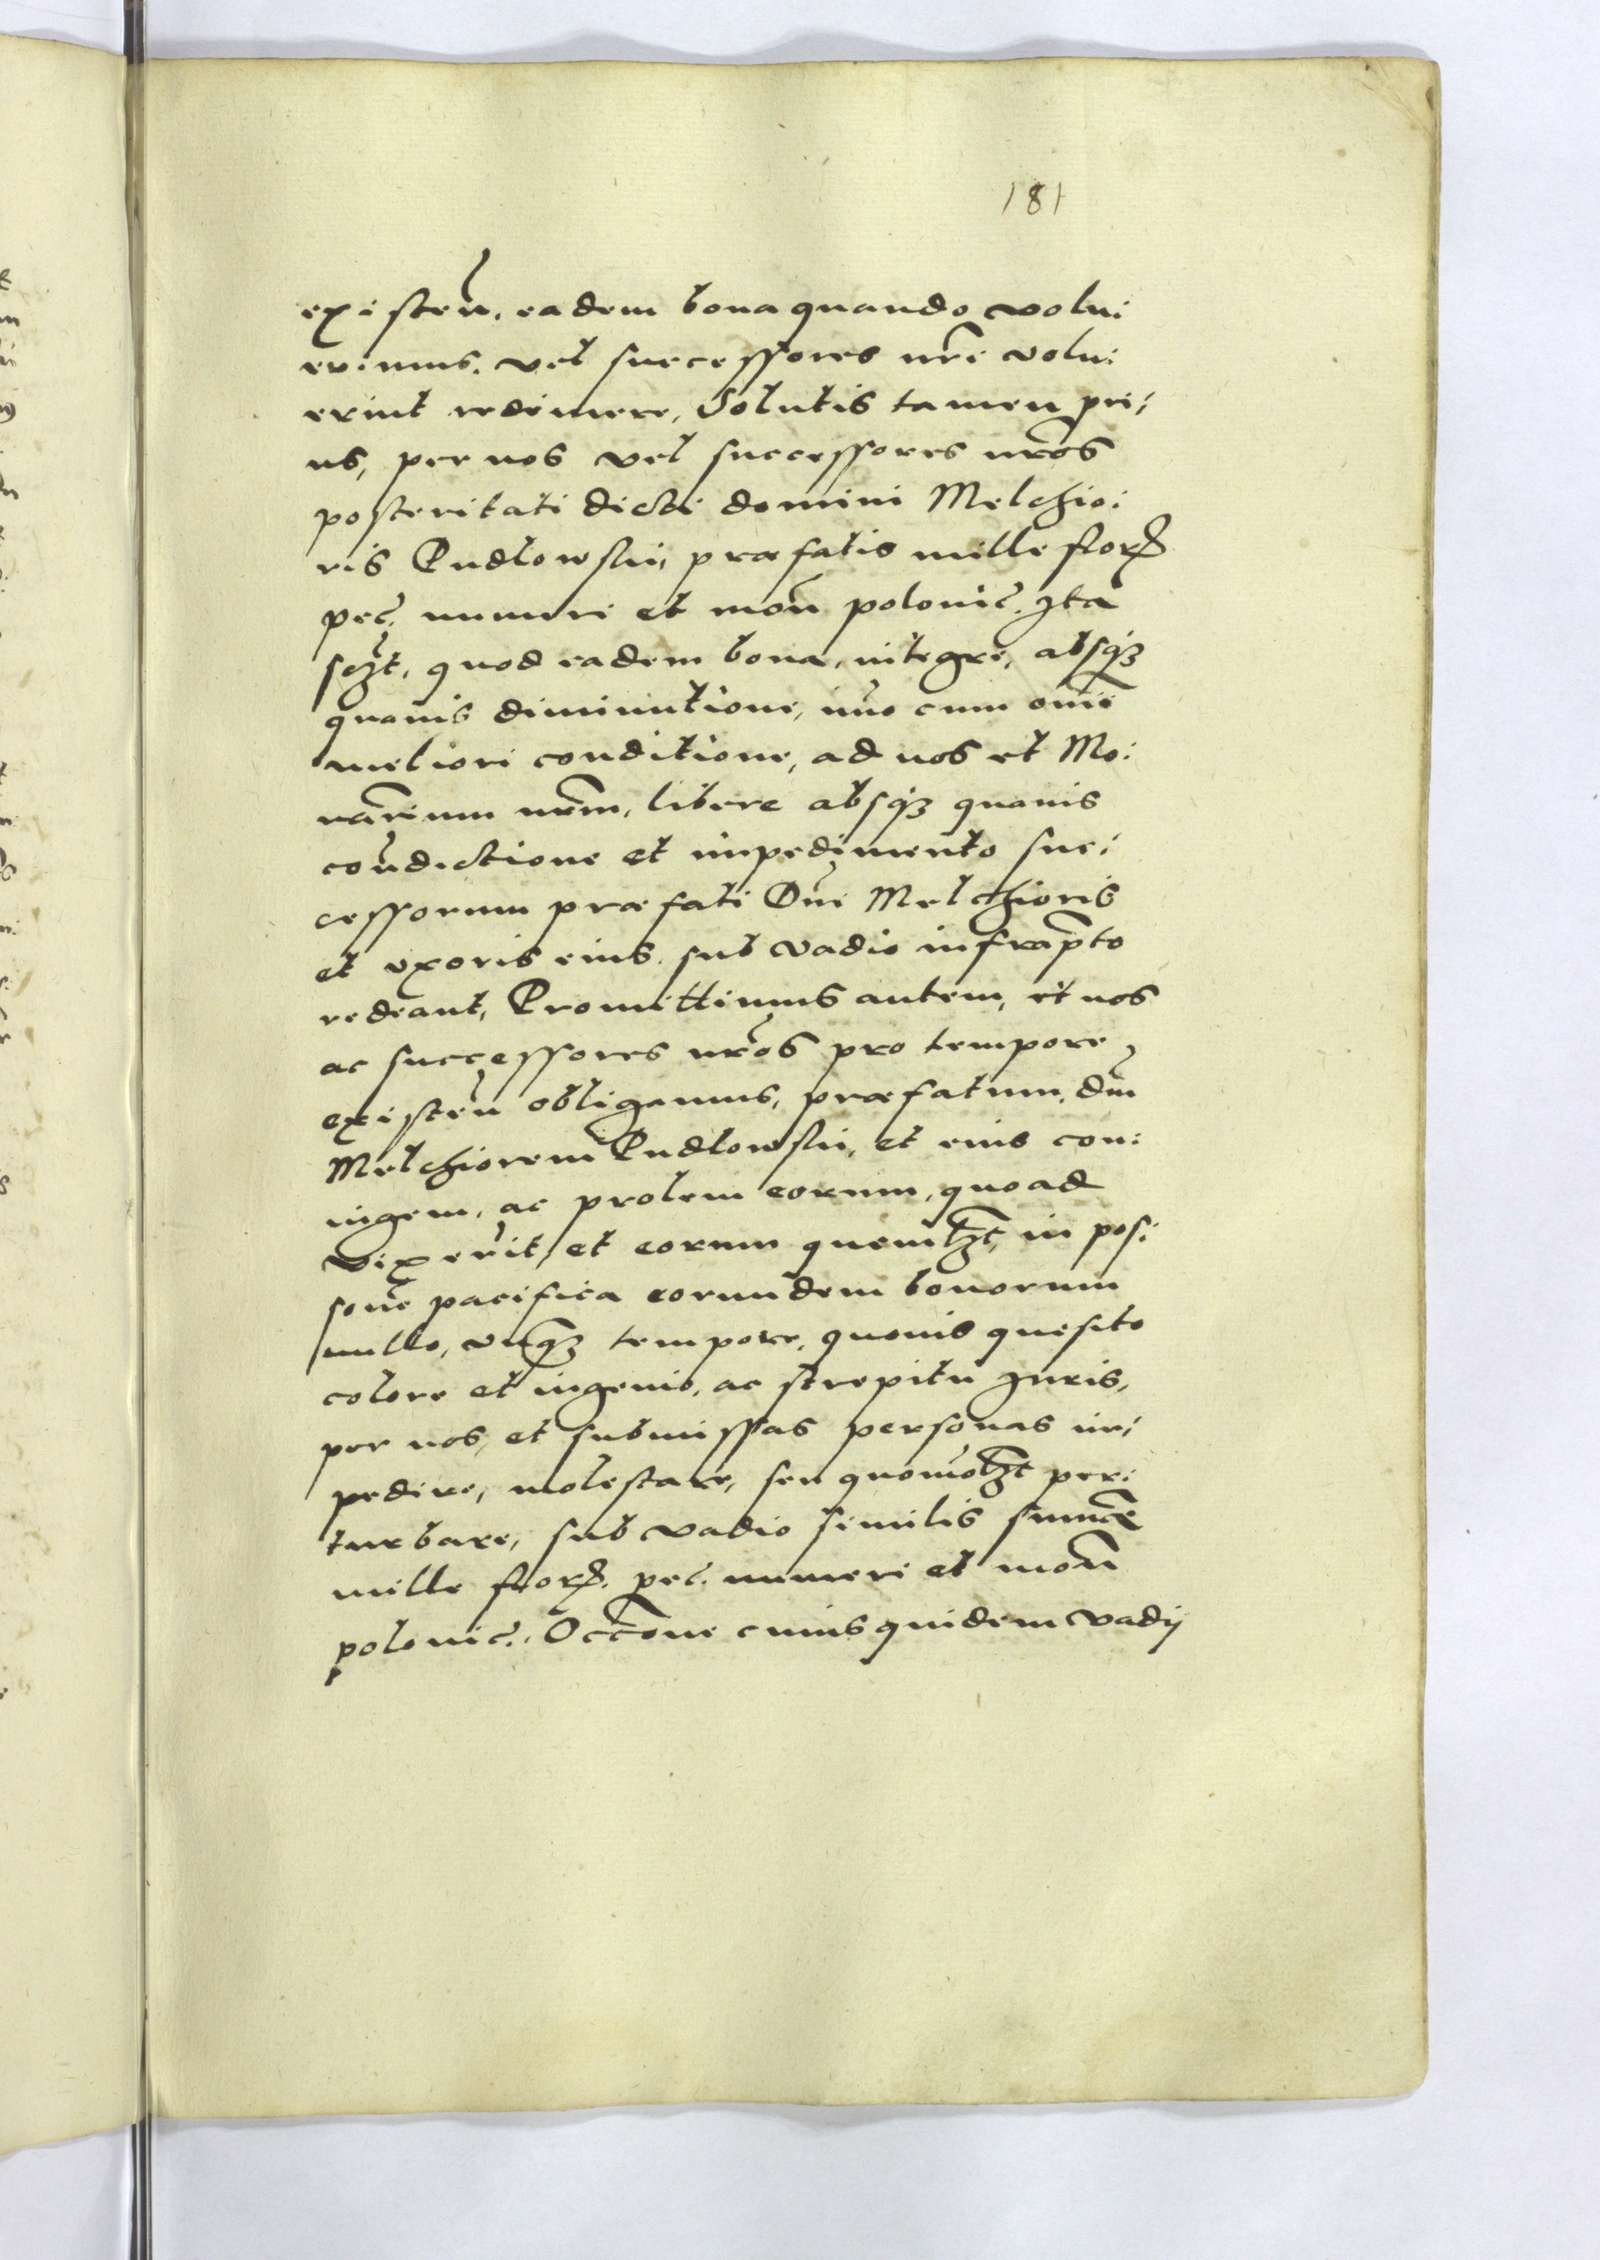 181
existen̄, eadem bona quando volu:
erimus, vel successores nr̄i volu:
erint redimere, Solutis tamen pri:
us, per nos vel successores nr̄os
posteritati dicti domini Melchio:
ris Pudlowskii, præfatis mille flor.
pec̄. numeri et mon̄ polonic̄. Ita
sclt̄, quod eadem bona, integre, absq3
quauis diminutione, imo cum om̄i
meliori conditione, ad nos et Mo:
nar̄ium nr̄m, libere absq3 quauis
con̄dictione et impedimento suc:
cessorum præfati Dn̄i Melchioris
et vxoris eius sub vadio infrap̄to
redeant, Promittimus autem, et nos
ac successores nr̄os pro tempore
existen̄ obligamus, præfatum, dn̄m
Melchiorem Pudlowskii, et eius con:
iugem, ac prolem eorum, quoad
vixerīt, et eorum quemlƷt, in pos:
son̄e pacifica eorundem bonorum
nullo, vnq̄3 tempore, quouis quesito
colore et ingenio, ac strepitu Iuris,
per nos, et submissas personas im:
pedire, molestare, seu quomolƷt per:
turbare, sub vadio similis sum̄æ
mille flor. pec̄. numeri et mon̄
polonic̄. Occ̄one cuius quidem vadij